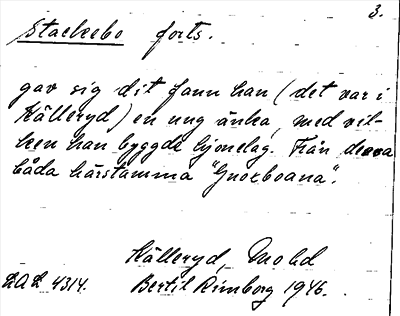 3.
Stackebo forts.
gav sig dit fann han (det var i
Källeryd) en ung änka, med vil-
ken han byggde hjonelag. Från dessa
båda härstamma "Gnozboana".
Källeryd, Mo hd
LAL 4314. Bertil Rimborg 1946.